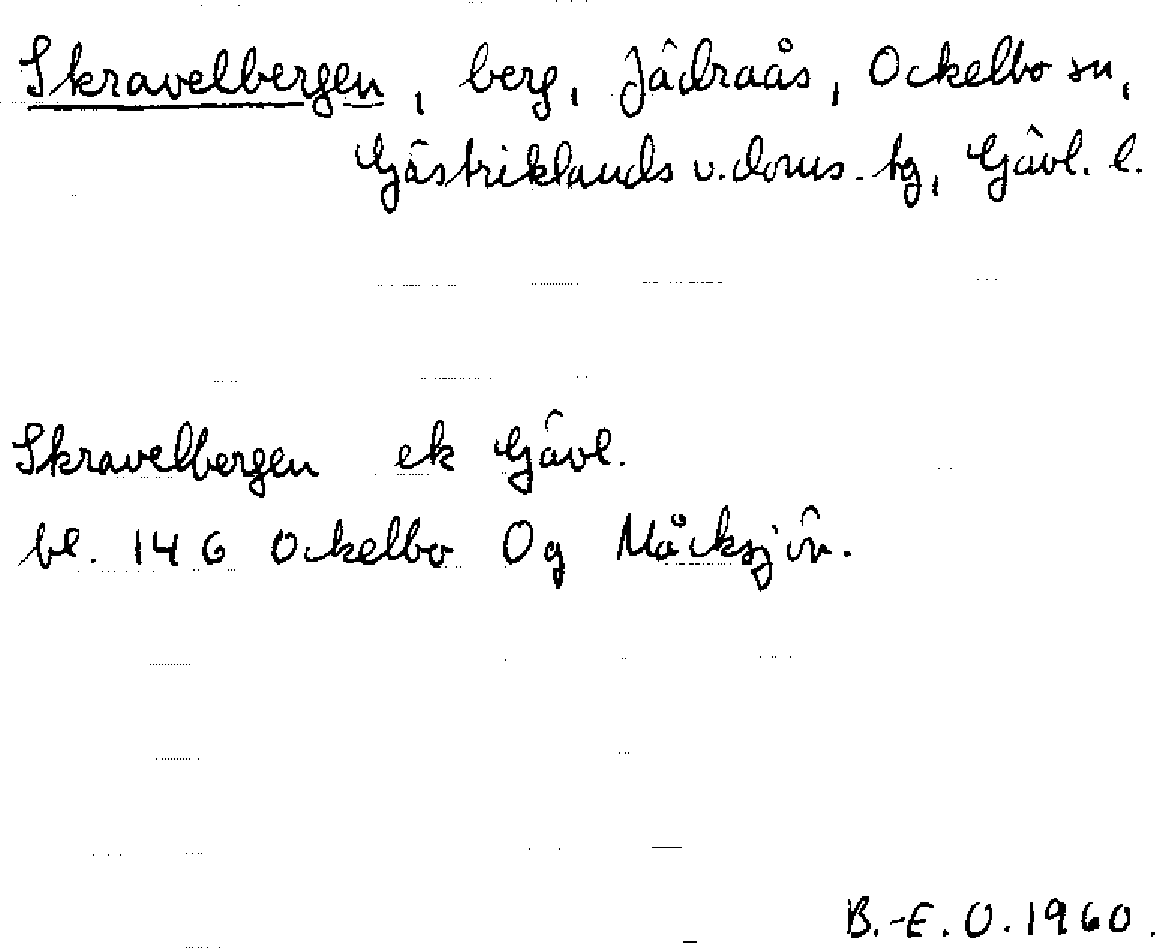 Skravelbergen, berg, Jädraås, Ockelbo sn,
Gästriklands v. doms. tg, Gävl. l.
Skravelbergen ek Gävl.
bl. 14 G Ockelbo 0g Måcksjön.
B.-E. O. 1960.